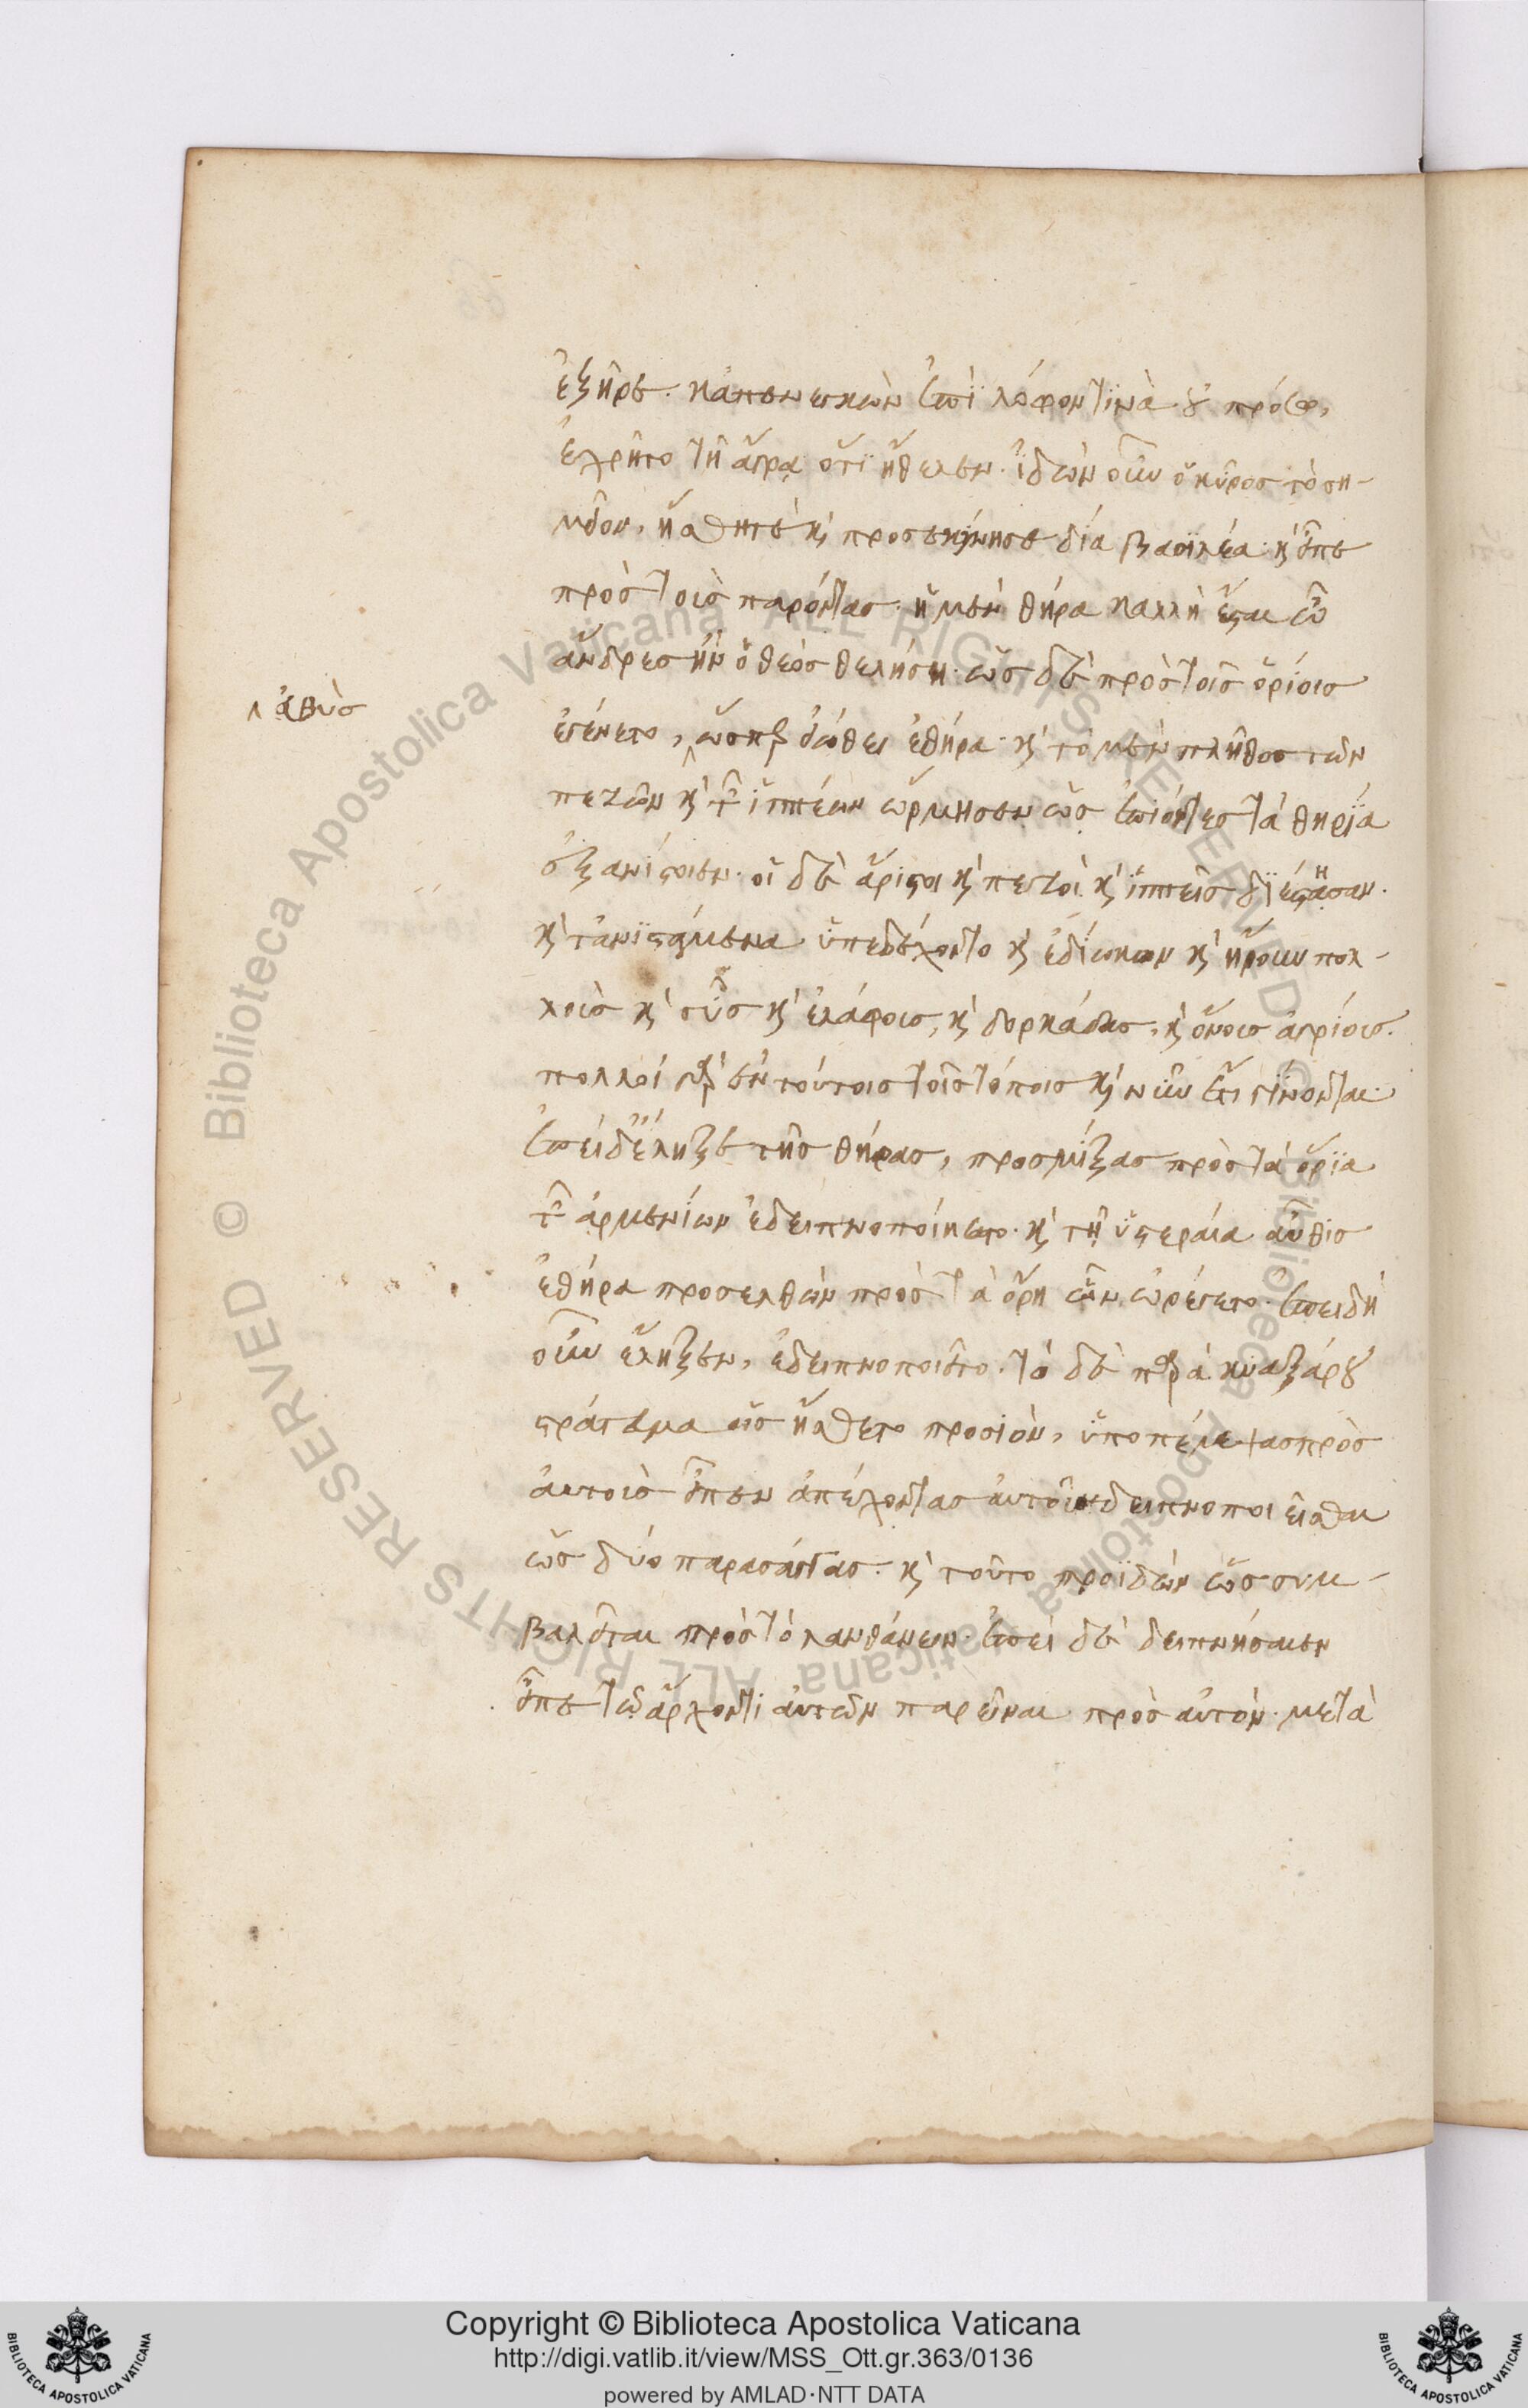 ἐξῆρε. κἀπενεγκὼν ἐπὶ λόφον τινὰ οὐ πρόσω,
ἐχρῆτο τῇ ἄγρᾳ ὅτι ἤθελεν. ἰδὼν οὖν ὁ κῦρος τὸ ση-
μεῖον, ἥσθητε καὶ προσεκύνησε δία βασιλέα. καὶ εἶπε
πρὸς τοὺς παρόντας. ἡ μὲν θήρα καλλὴ ἔσται ὦ
ἄνδρες ἢν ὁ θεὸς θελήσῃ. ὡς δὲ πρὸς τοῖς ὁρίοις
ἐγένετο, ὥσπερ εἰώθει ἐθήρα. καὶ τὸ μὲν πλῆθος τῶν
^ εὐθὺς
πεζῶν καὶ τῶν ἱππέων ὥρμησεν ὡς ἐπιόντες τὰ θηρία
ἐξανίστοιεν. οἱ δὲ ἄριστοι καὶ πεζοὶ καὶ ἱππεῖς διέστησαν.
καὶ τἀνιστάμενα ὑπεδέχοντο καὶ ἐδίωκον καὶ ᾕρουν πολ-
λοὺς καὶ σῦς καὶ ἐλάφους, καὶ δορκάδας, καὶ ὄνους ἀγρίους.
πολλοί γὰρ ἐν τούτοις τοῖς τόποις καὶ νῦν ἔτι γίνονται.
ἐπεὶ δ' ἔληξε τῆς θήρας, προσμίξας πρὸς τὰ ὅρια
τῶν ἀρμενίων ἐδειπνοποίησατο. καὶ τῇ ὑστεραία αὖθις
ἐθήρα προσελθὼν πρὸς τὰ ὄρη ὧν ὠρέγετο. ἐπειδὴ
οὖν ἔληξεν, ἐδειπνοποιεῖτο. τὸ δὲ παρὰ κυαξάρου
στράτευμα ὡς ᾔσθετο προσιὸν, ὑποπέμψας πρὸς
αὐτοὺς εἶπεν ἀπέχοντας αὐτοῦ δειπνοποιεῖσθαι
ὡς δύο παρασάγγας. καὶ τοῦτο προϊδὼν ὡς συμ-
βαλεῖται πρὸς τὸ λανθάνειν. ἐπεὶ δὲ δειπνήσαιεν
εἶπε τῷ ἄρχοντι αὐτῶν παρεῖναι πρὸς αὐτόν. μετὰ
Copyright © Biblioteca Apostolica Vaticana
http://digi.vatlib.it/view/MSS_Ott.gr.363/0136
powered by AMLAD·NTT DATA